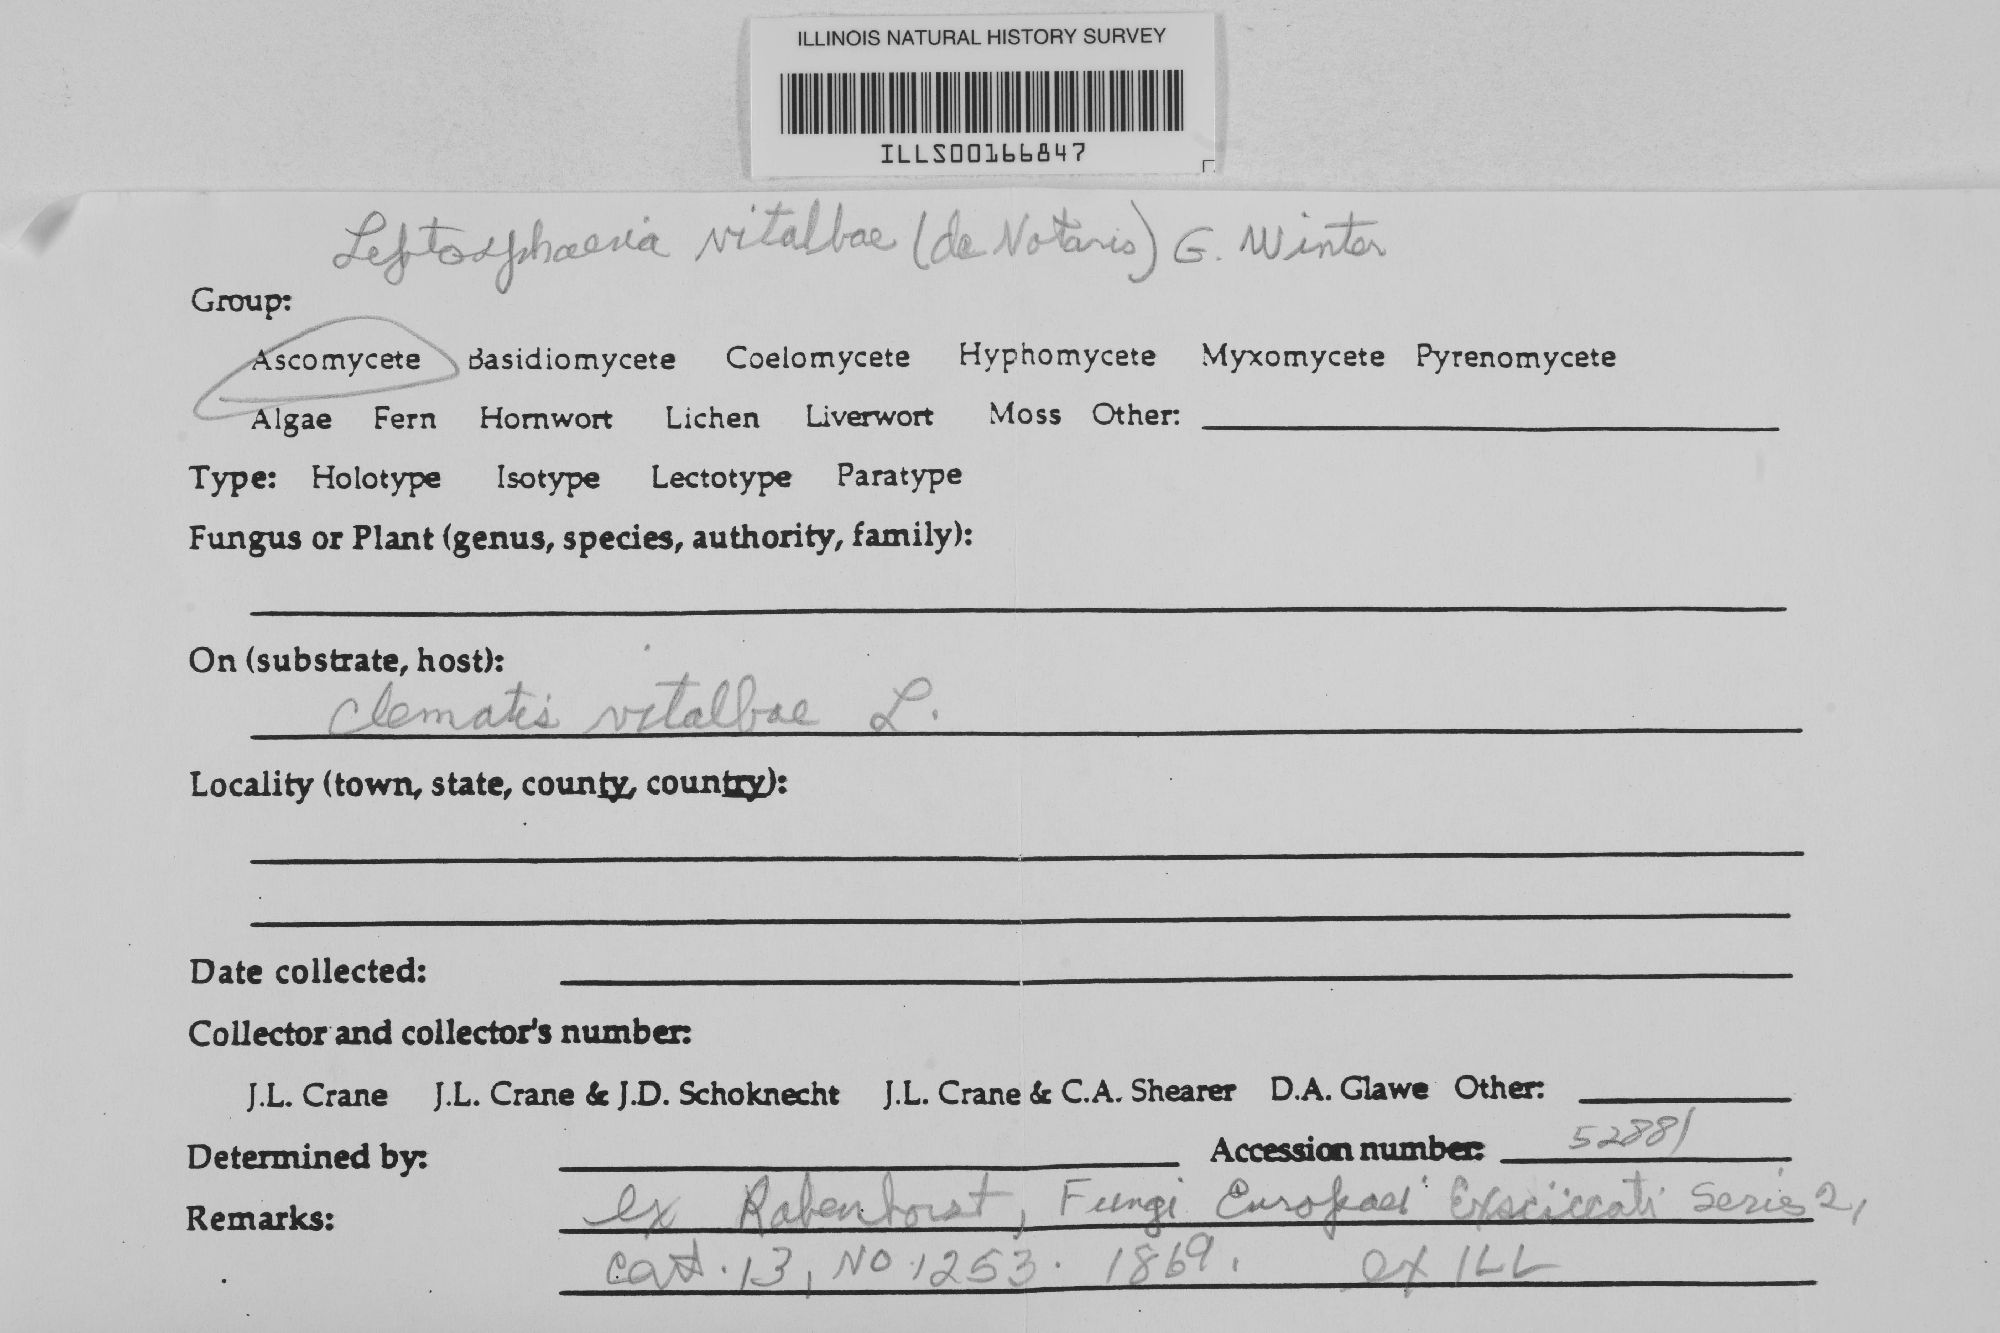 ILLINOIS NATURAL HISTORY SURVEY
ILLS00166847
Leptosphaeria vitalbae (de Notaris) G. Winter
Group:
Ascomycete Basidiomycete Coelomycete Hyphomycete Myxomycete Pyrenomycete
Algae Fern Hornwort Lichen Liverwort Moss Other:
Type: Holotype Isotype Lectotype Paratype
Fungus or Plant (genus, species, authority, family):
On (substrate, host):
Clematis vitalbae L.
Locality (town, state, county, country):
Date collected:
Collector and collector's number:
J.L. Crane J.L. Crane & J.D. Schoknecht J.L. Crane & C.A. Shearer D.A. Glawe Other:
Determined by: Accession number: 52881
Remarks: ex Rabenhorst, Fungi Europaei Exsiccati Series 2,
cat. 13, No. 1253. 1869. ex ILL